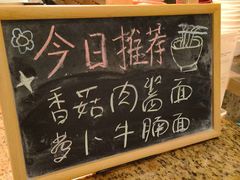 今日推荐
香菇肉酱面
萝卜牛腩面